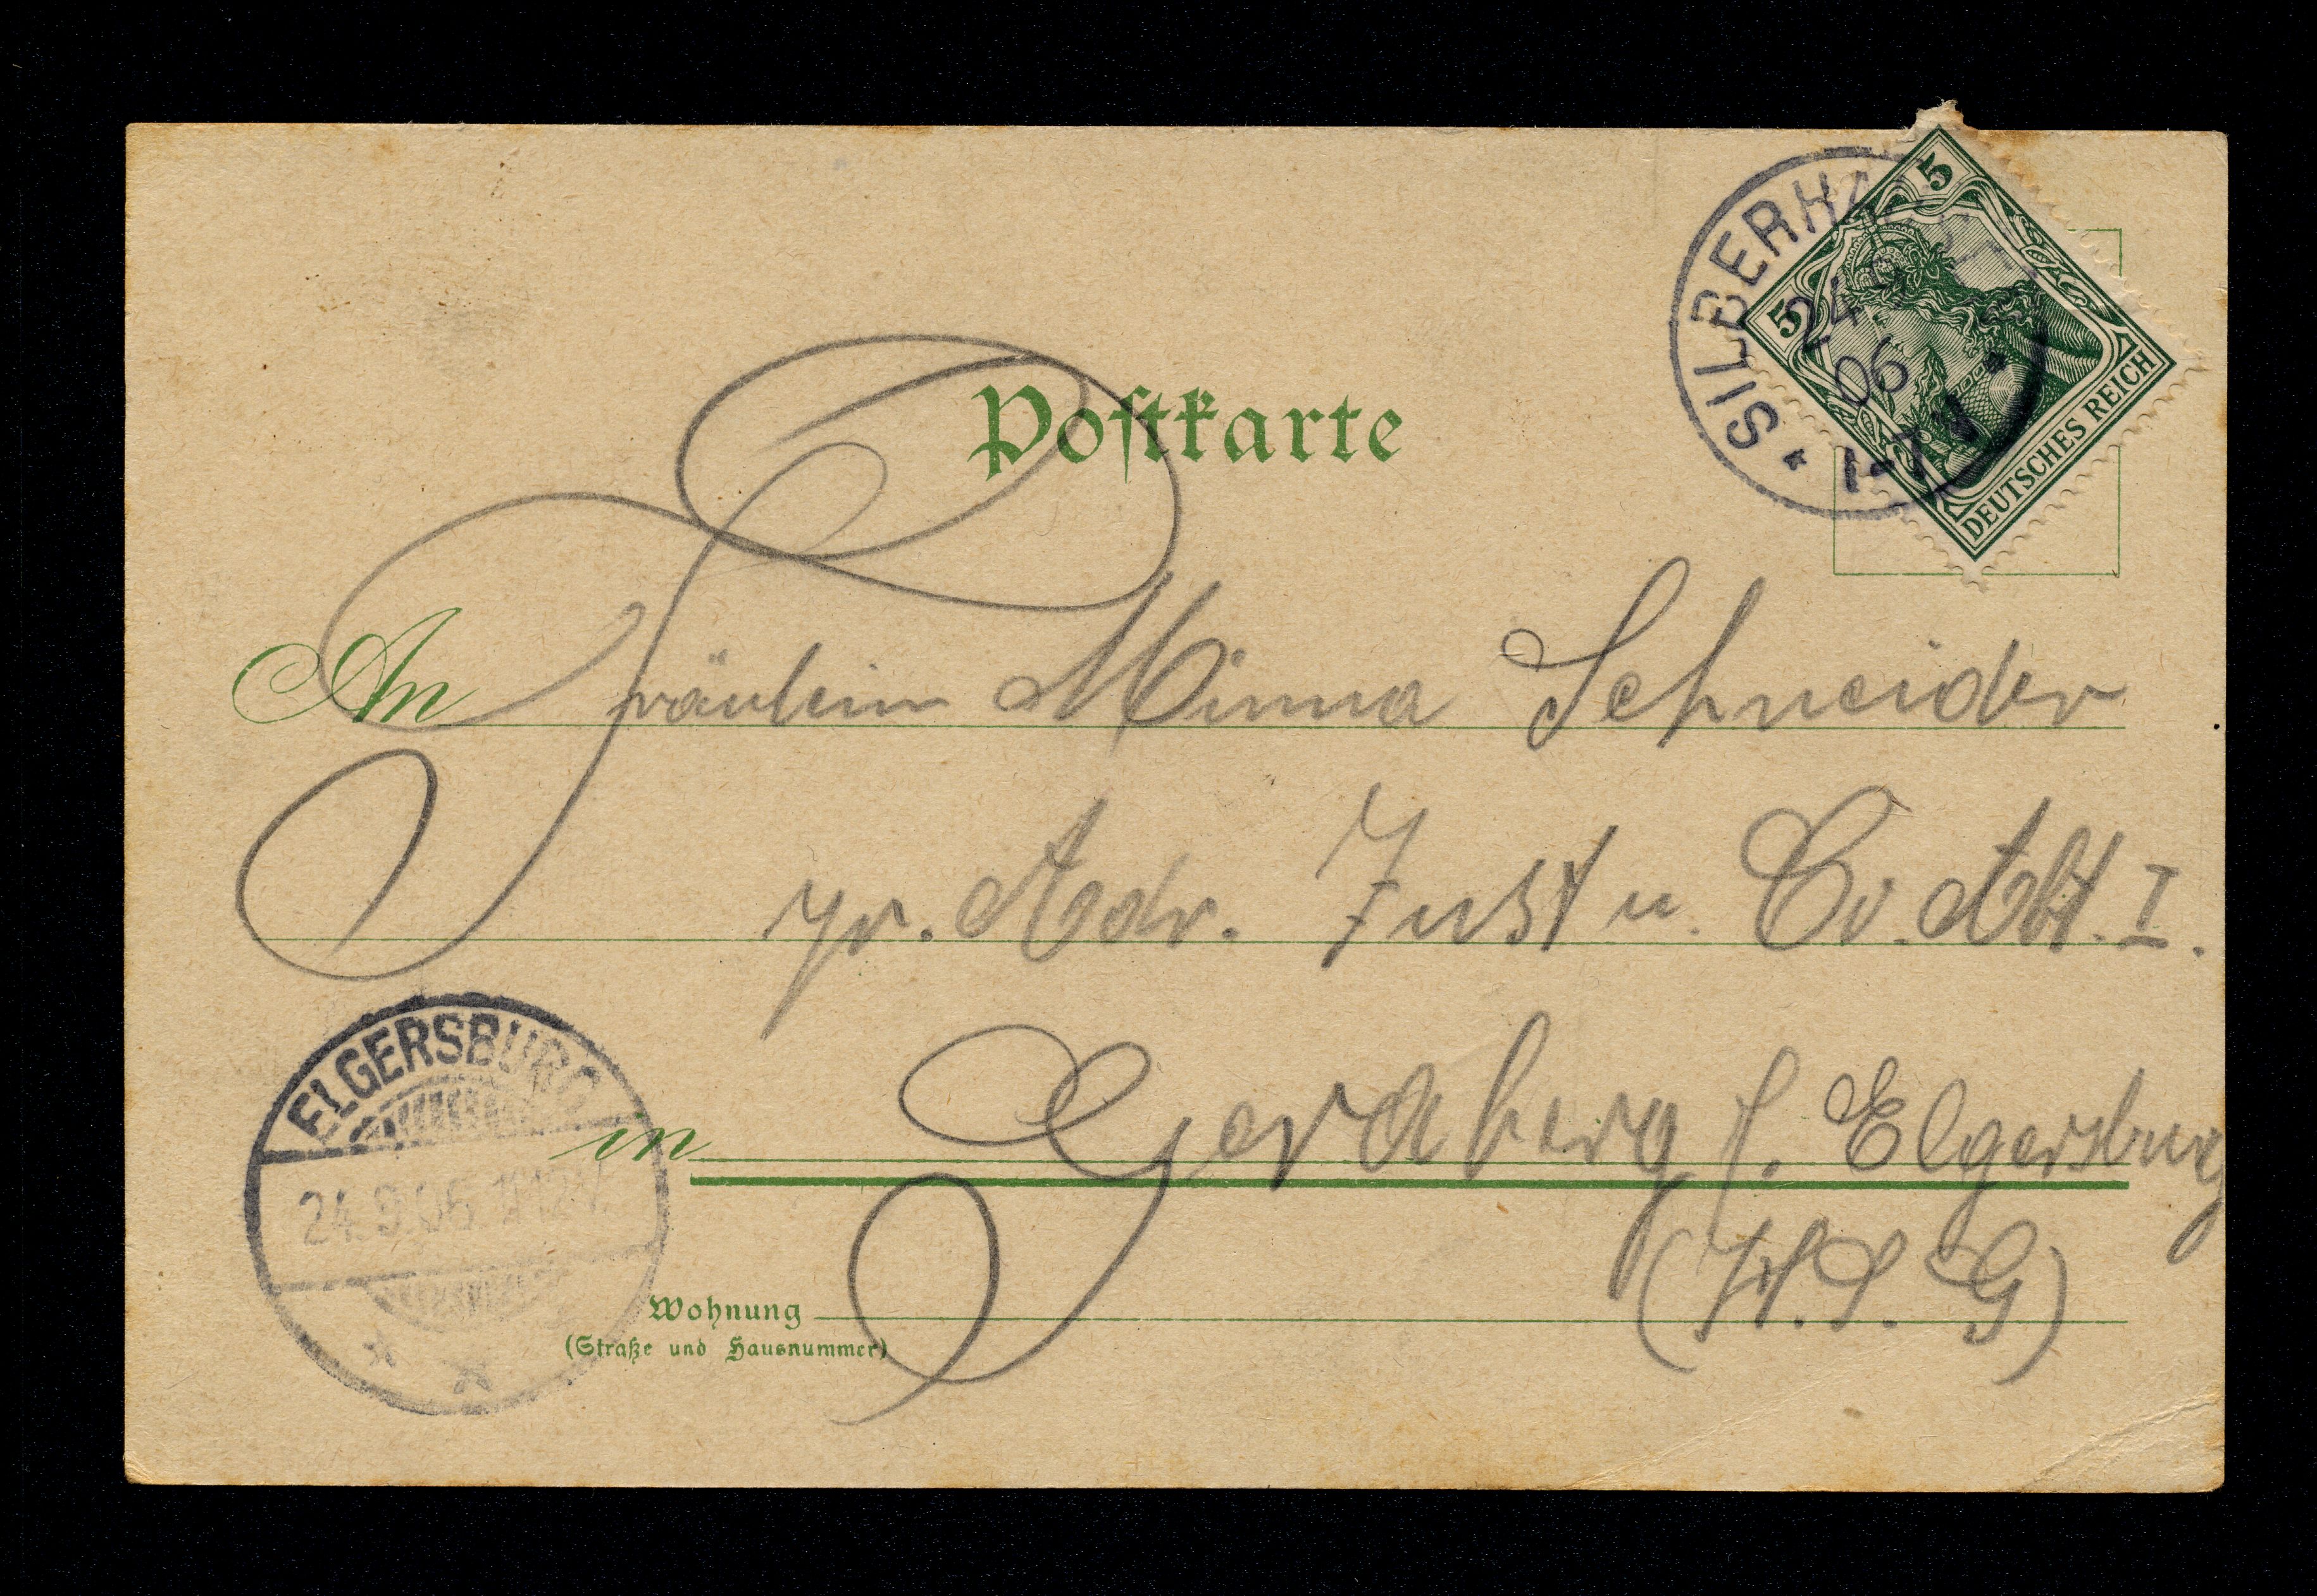 Postkarte
SILBERHA
24 9
06
1-7 N
5
5
DEUTSCHES REICH
An Fräulein Minna Schneider
pr. Adr. Just u. Co. Abt. I.
in Geraberg f. Elgersburg
(H. S. G)
ELGERSBURG
24.9.06.
Wohnung
(Straße und Hausnummer)